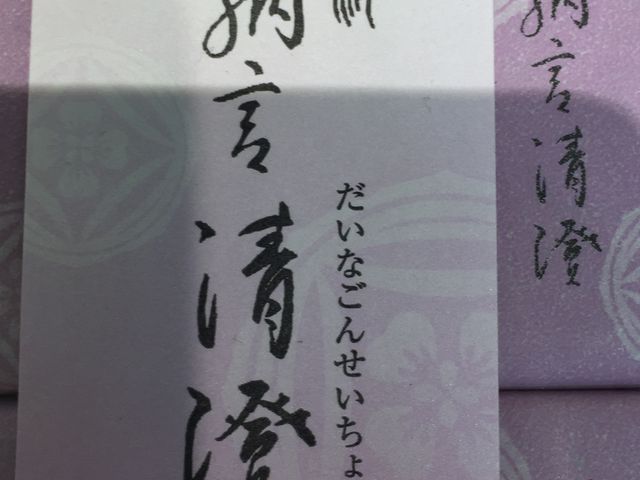 納言清澄
だいなごんせいちょ
納言清澄